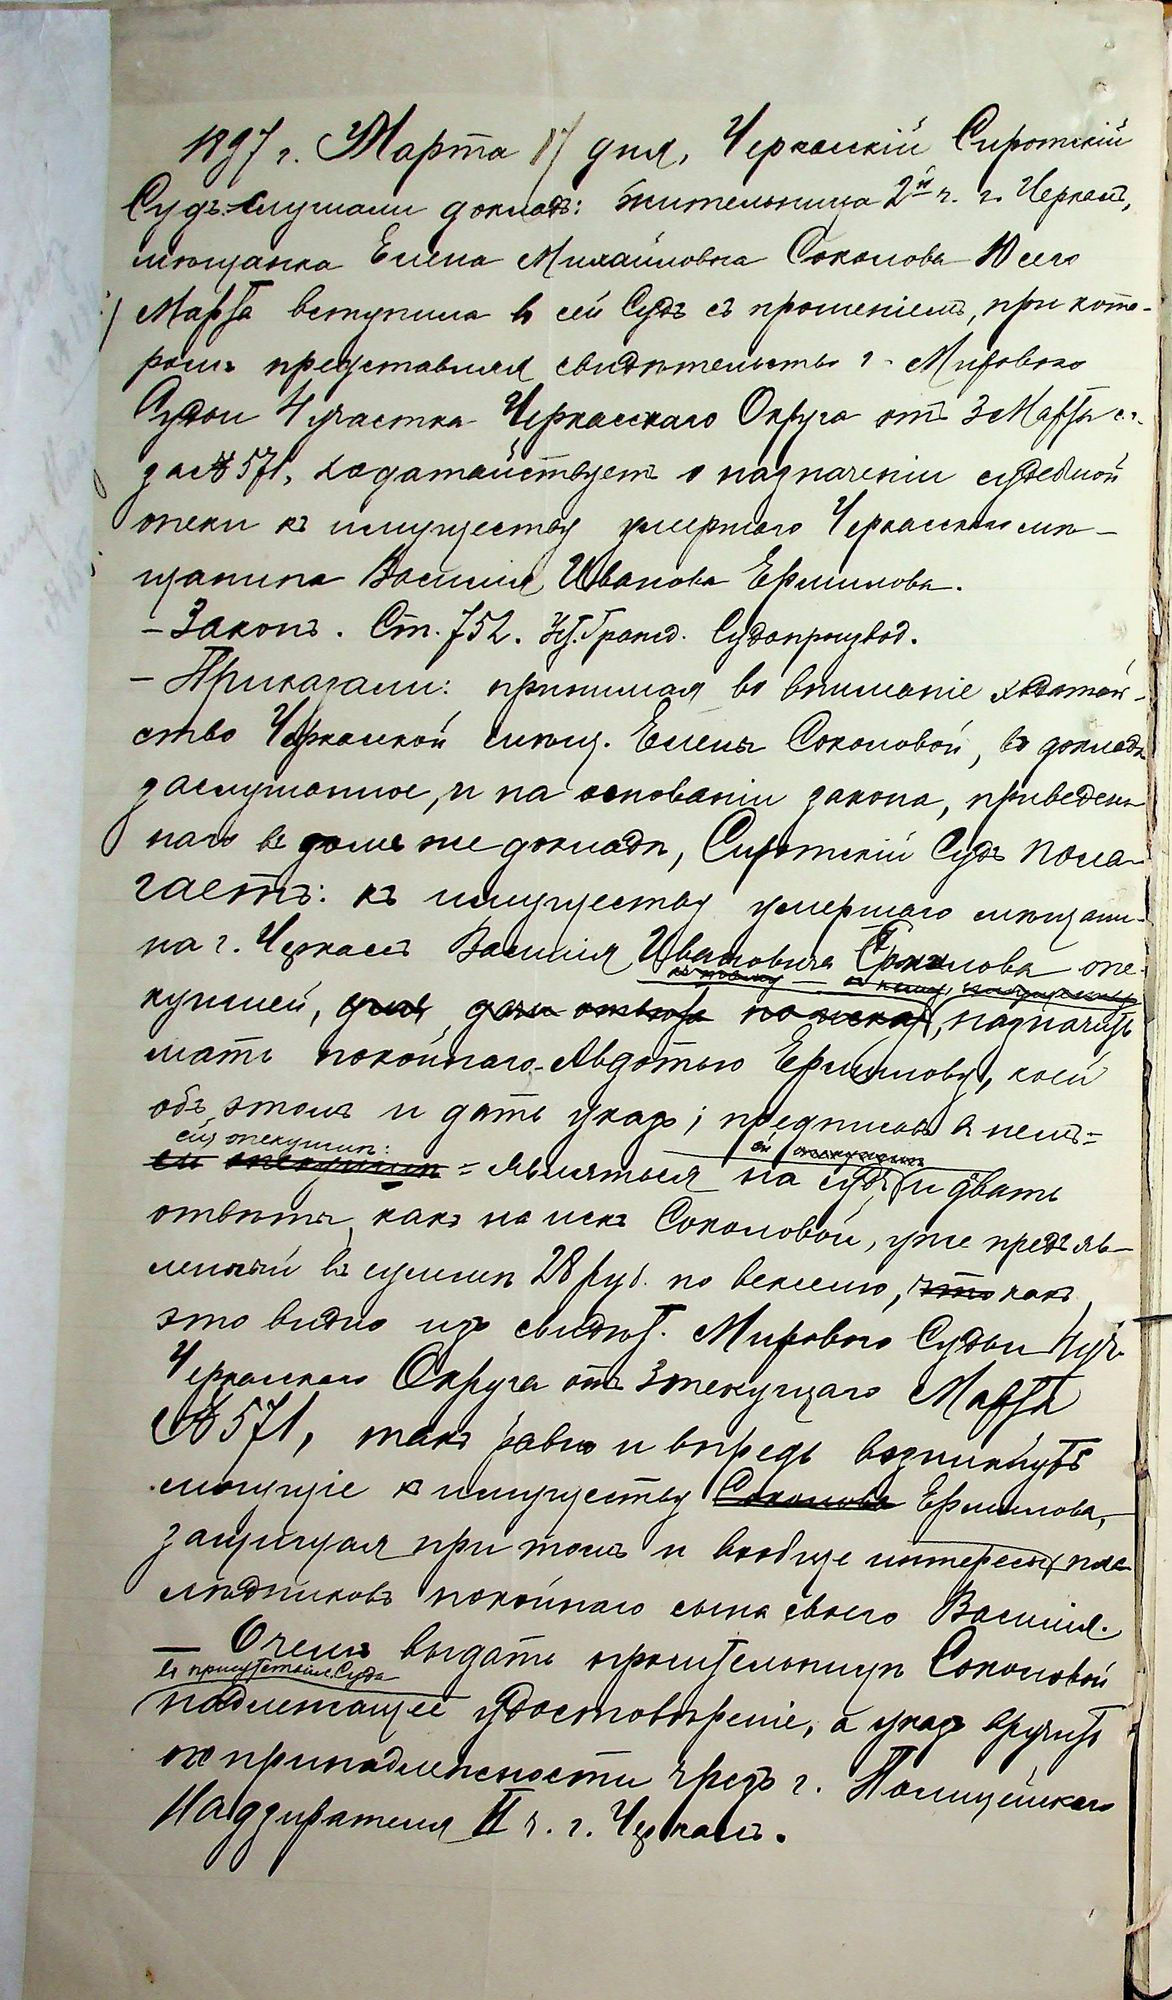 1897 г. Марта 17 дня, Черкасскій Сиротскій
Судъ слушали докладъ: жительница 2й ч. г. Черкасъ,
мѣщанка Елена Михайловна Соколова 10 сего
Марта вступила въ сей Судъ съ прошеніемъ, при кото-
ромъ представляя свидѣтельство г. Мирового
Судьи 4 участка Черкасскаго Округа отъ 3 Марта с. г.
за № 571, ходатайствуетъ о назначеніи судебной
опеки къ имуществу умершаго Черкасскаго мѣ-
щанина Василія Иванова Ермилова.
– Законъ. Ст. 752. Уст. Гражд. Судопроизвод.
– Приказали: принимая во вниманіе ходатай-
ство Черкасской мѣщ. Елены Соколовой, въ докладѣ
заслушанное, и на основаніи закона, приведен-
наго въ томъ же докладѣ, Сиротскій Судъ пола-
гаетъ: къ имуществу умершаго мѣщани-
на г. Черкасъ Василія Ивановича Ермилова опе-
куншей, для дачи отвѣта по иска, назначить
мать покойнаго Явдотью Ермилову, коей
объ этомъ и дать указъ; предписавъ въ немъ=
ей, опекуншѣ:
ей опекуншѣ = являться на судъ и давать
отвѣты, какъ на искъ Соколовой, уже предъяв-
ленный въ суммѣ 28 руб. по векселю, что какъ
это видно изъ свидѣт. Мирового Судьи 4 уч.
Черкасскаго Округа отъ 3 текущаго Марта
№ 571, такъ равно и впредь возникнуть
могущіе къ имуществу Соколова Ермилова,
защищая при томъ и вообще интересы нас-
лѣдниковъ покойнаго сына своего Василія.
– О чемъ выдать просительницѣ Соколовой
въ присутствіи Суда
надлежащее удостовѣреніе, а указъ вручить
по принадлежности чрезъ г. Полицейскаго
Надзирателя II ч. г. Черкасъ.